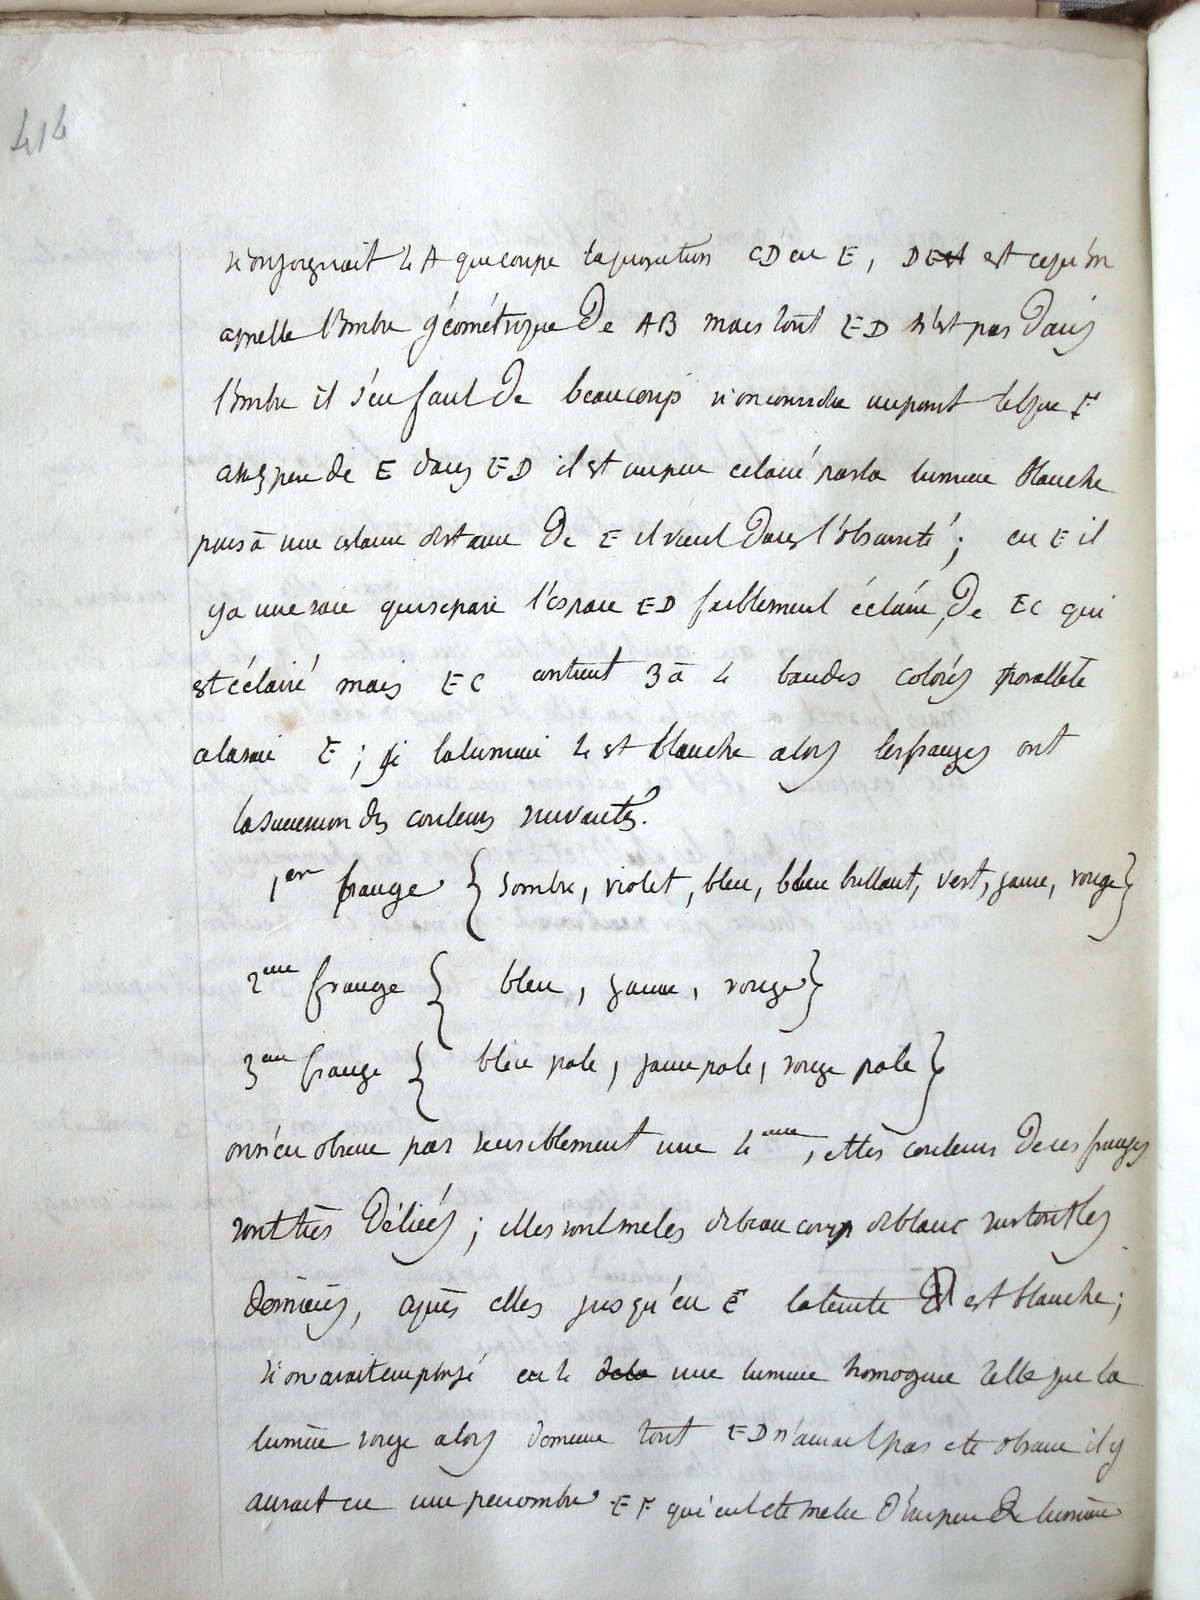 414
si on joignait L A qui coupe la projection CD en E, DE est ce qu'on
appelle l'ombre géométrique de AB mais tout ED n'est pas dans
l'ombre il s'en faut de beaucoup si on considere un point tel que F
assez peu de E dans ED il est un peu eclairé par la lumiere blanche
puis à une certaine distance de E il vient dans l'obscurité; en E il
y a une raie qui separe l'espace ED faiblement éclairé, de EC qui
est éclairé mais EC contient 3 à 4 bandes colorés parallele
a la raie E; si la lumiere L est blanche alors les franges ont
la succession des couleurs suivantes.
1ere frange { sombre, violet, bleu, bleu brillant, vert, jaune, rouge }
2eme frange { bleu, jaune, rouge }
3eme frange { bleu pale, jaune pale, rouge pale }
on n'en observe pas sensiblement une 4eme, et les couleurs de ces franges
sont très déliées; elles sont meles de beaucoup de blanc surtout les
dernieres, après elles jusqu'en C la teinte est blanche;
si on avait employé en L de la une lumiere homogene telle que la
lumière rouge alors de meme tout ED n'aurait pas ete obscur il y
aurait eu une penombre EF qui eut ete melee d'un peu de lumière